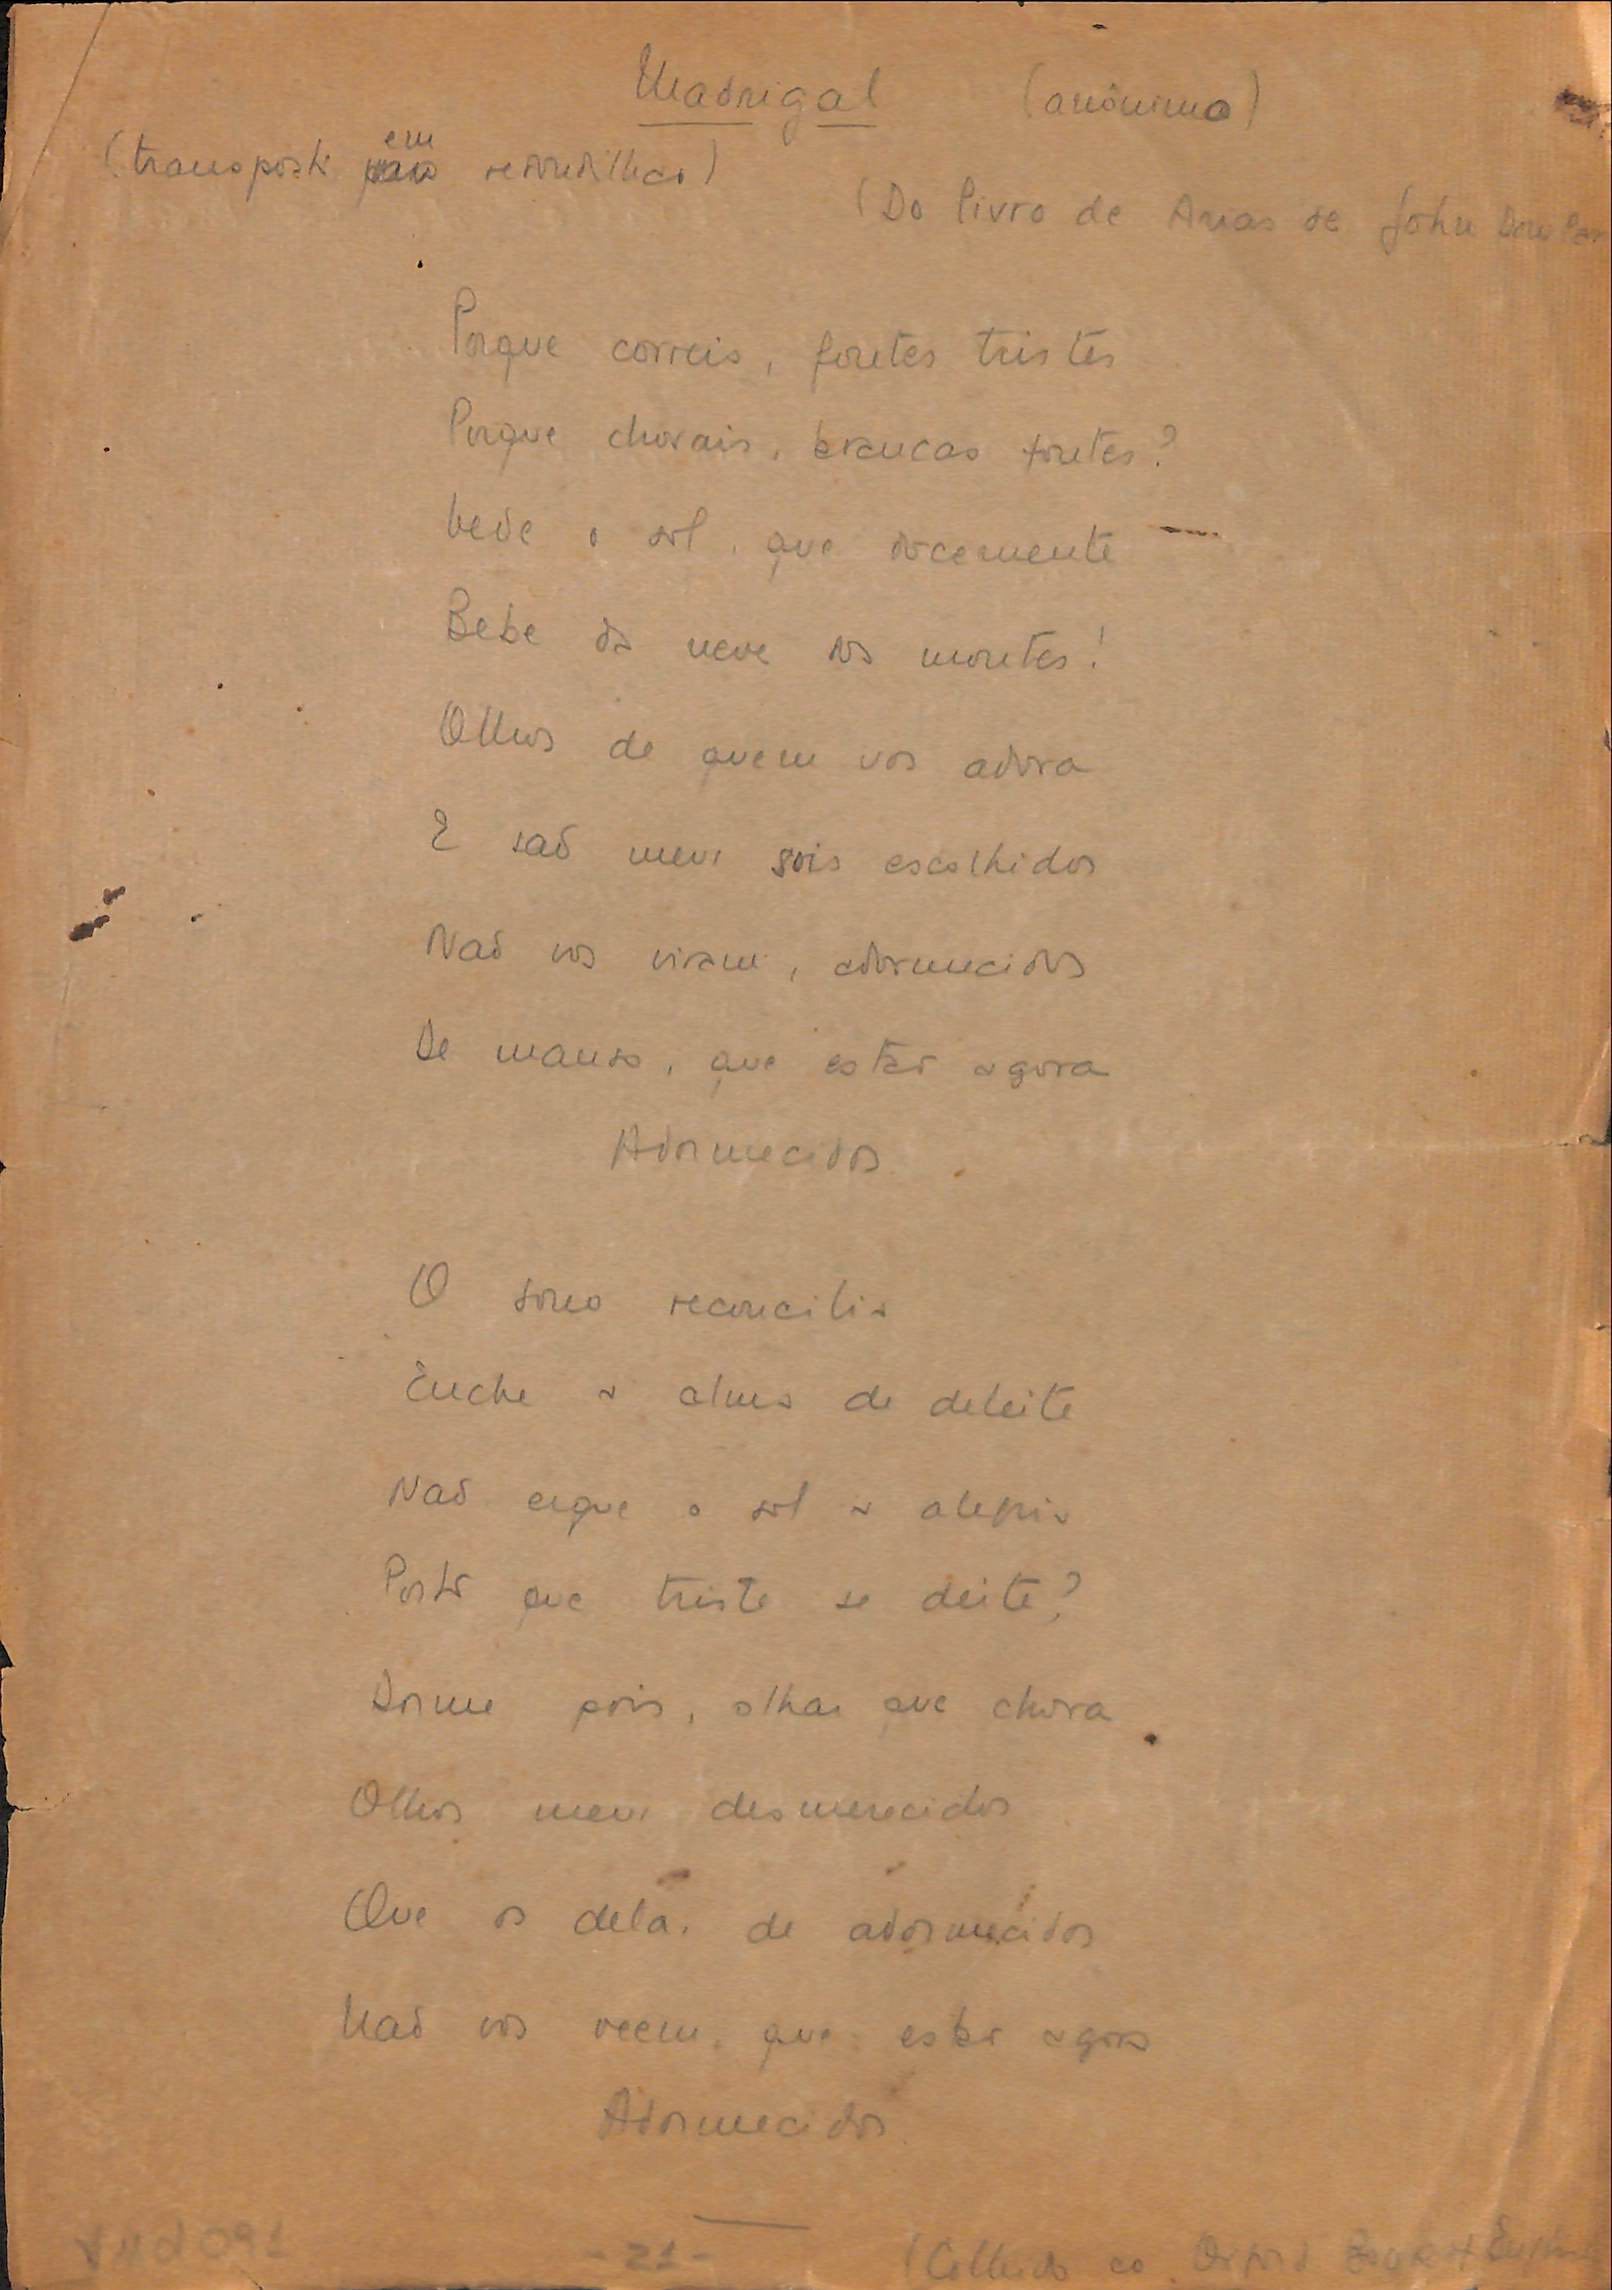 Madrigal (anônimo)
(transposto em redondilhas)
(Do livro de Arias de John Dow
Porque correis, fontes tristes
Porque chorais, brancas fontes?
Vede o sol, que docemente
Bebe da neve dos montes!
Olhos de quem vos adora
E saõ meus sois escolhidos
Naõ vos viram, adormecidos
De manso, que estão agora
Adormecidos.
O sono reconcilia
Enche a alma de deleite
Naõ ergue o sol a alegria
Posto que triste se deite?
Dorme pois, olhar que chora
Olhos meus desmerecidos
Que os dela, de adormecidos
Naõ vos veem, que estão agora
Adormecidos
- 21 -
(Colhido no Oxford Book of